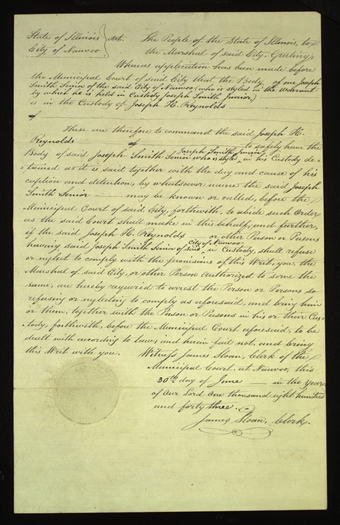 State of Illinois } Sct. The People of the State of Illinois, to
City of Nauvoo } the Marshal of said City, Greeting;
Whereas application has been made before
the Municipal Court of said City that the Body of one Joseph
Smith Senior of the said City of Nauvoo (who is styled in the warrant
by which he is held in custody Joseph Smith Junior)
is in the Custody of Joseph H. Reynolds
of
These are therefore to command the said Joseph H.
Reynolds of to safely have the
Body of said Joseph Smith Senior who is styled Joseph Smith Junior, in his Custody de-
tained as it is said together with the day and cause of his
caption and detention, by whatsoever name the said Joseph
Smith Senior may be known or called, before the
Municipal Court of said City, forthwith, to abide such Order
as the said Court shall make in this behalf, and further,
if the said Joseph H. Reynolds or other Person or Persons
having said Joseph Smith Senior of said City of Nauvoo, in Custody, shall refuse
or neglect to comply with the provisions of this Writ, you the
Marshal of said City, or other Person authorized to serve the
same, are hereby required to arrest the Person or Persons so
refusing or neglecting to comply as aforesaid, and bring him
or them, together with the Person or Persons in his or their Cus-
tody, forthwith, before the Municipal Court aforesaid, to be
dealt with according to Law; and herein fail not, and bring
this Writ with you.
Witness James Sloan, Clerk of the
Municipal Court at Nauvoo, this
30th day of June in the Year
of our Lord one thousand eight hundred
and forty three.
James Sloan, Clerk.